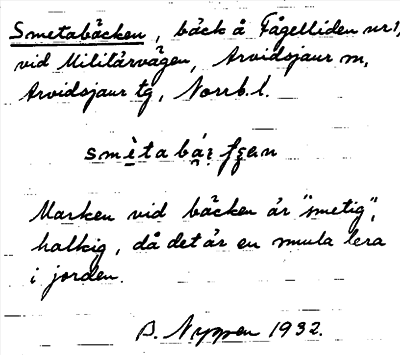 Smetabäcken, bäck å Fågelliden nr 1,
vid Militärvägen, Arvidsjaur sn,
Arvidsjaur tg, Norrb. l.
Marken vid bäcken är "smetig",
halkig, då det är en smula lera
i jorden.
B. Nyppen 1932.